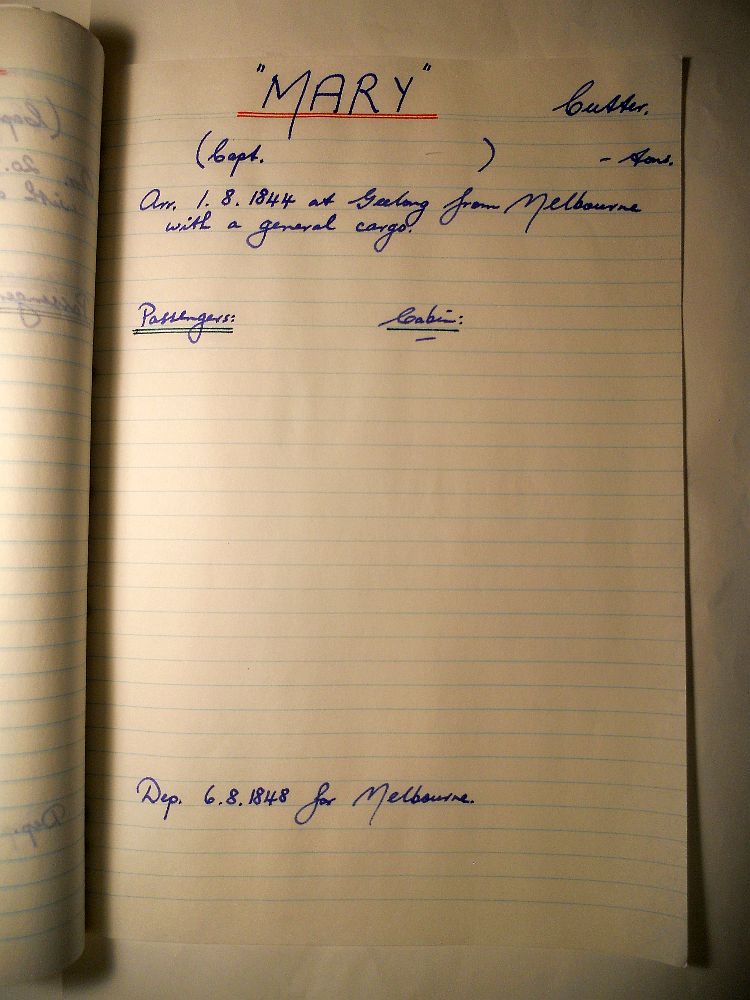 "MARY" Cutter.
(Capt. — ) - tons.
Arr. 1. 8. 1844 at Geelong from Melbourne
with a general cargo.
Passengers: Cabin:
—
Dep. 6.8.1848 for Melbourne.